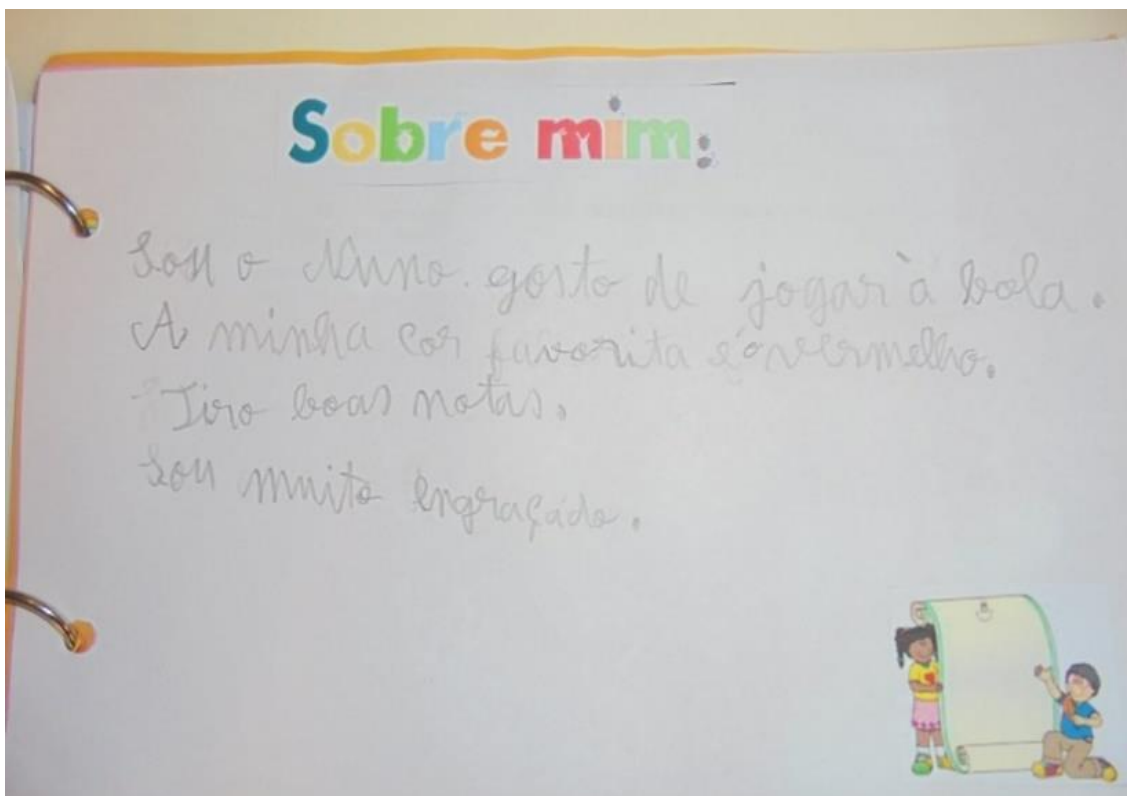 Sobre mim:
Sou o Nuno. gosto de jogar à bola.
A minha cor favorita é o vermelho.
Tiro boas notas.
Sou muito engraçado.